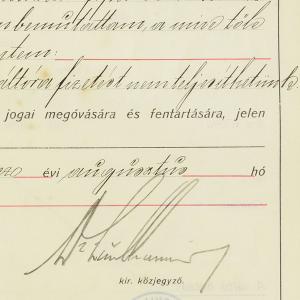 bemutattam, a mire tőle
váltóra fizetést nem teljesíthetünk.
jogai megóvására és fentartására, jelen
évi augusztus hó
Dr
kir. közjegyző.